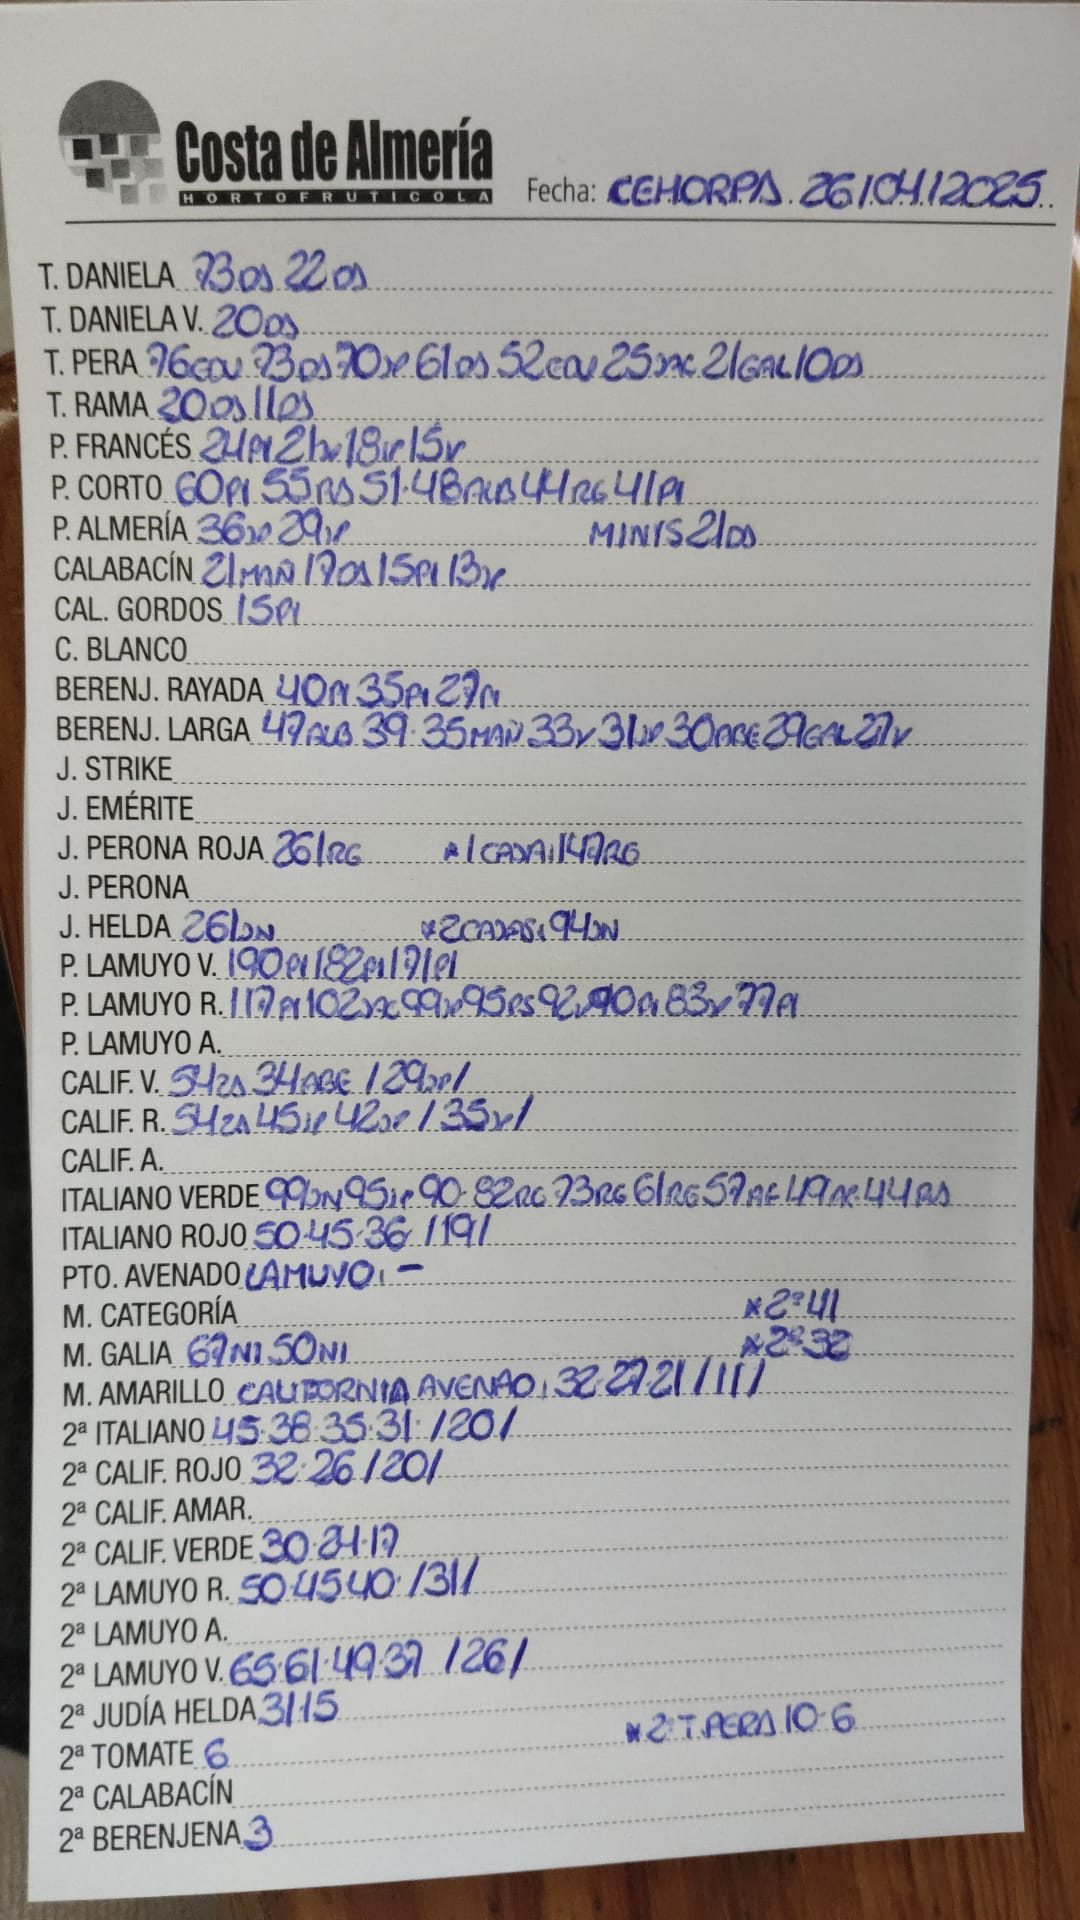 Costa de Almería
HORTOFRUTICOLA
Fecha: CEHORPA. 26/04/2025
T. DANIELA 73DS 22DS
T. DANIELA V. 20DS
T. PERA 76COV 73DS 70JP 61DS 52COV 25 21GAL 10DS
T. RAMA 20DS 11DS
P. FRANCÉS 24PI 21 18 15V
P. CORTO 60PI 55RS 51·48ALB 44RG 41PI
P. ALMERÍA 36JP 29V MINIS 21DS
CALABACÍN 21MAÑ 17DS 15PI 13JP
CAL. GORDOS 15PI
C. BLANCO
BERENJ. RAYADA 40PI 35PI 27PI
BERENJ. LARGA 47ALB 39·35MAÑ 33V 31JP 30ABE 29GAL 27V
J. STRIKE
J. EMÉRITE
J. PERONA ROJA 261RG *1 CAJA: 147RG
J. PERONA
J. HELDA 261JN *2 CAJAS: 94JN
P. LAMUYO V. 190PI 182PI 171PI
P. LAMUYO R. 117PI 102 99 95RS 92 90PI 83V 77PI
P. LAMUYO A.
CALIF. V. 54ZA 34ABE /29JP/
CALIF. R. 54ZA 45JP 42JP /35V/
CALIF. A.
ITALIANO VERDE 99JN 95JP 90·82RG 73RG 61RG 57AF 49 44RS
ITALIANO ROJO 50·45·36 /19/
PTO. AVENADO LAMUYO: -
M. CATEGORÍA *2ª 41
M. GALIA 67NI 50NI *2ª 32
M. AMARILLO CALIFORNIA AVENAO: 32·27·21 /11/
2ª ITALIANO 45·38·35·31· /20/
2ª CALIF. ROJO 32·26 /20/
2ª CALIF. AMAR.
2ª CALIF. VERDE 30·24·17
2ª LAMUYO R. 50·45 40· /31/
2ª LAMUYO A.
2ª LAMUYO V. 65·61·49·37 /26/
2ª JUDÍA HELDA 31·15
2ª TOMATE 6 *2ª T. PERA 10·6
2ª CALABACÍN
2ª BERENJENA 3